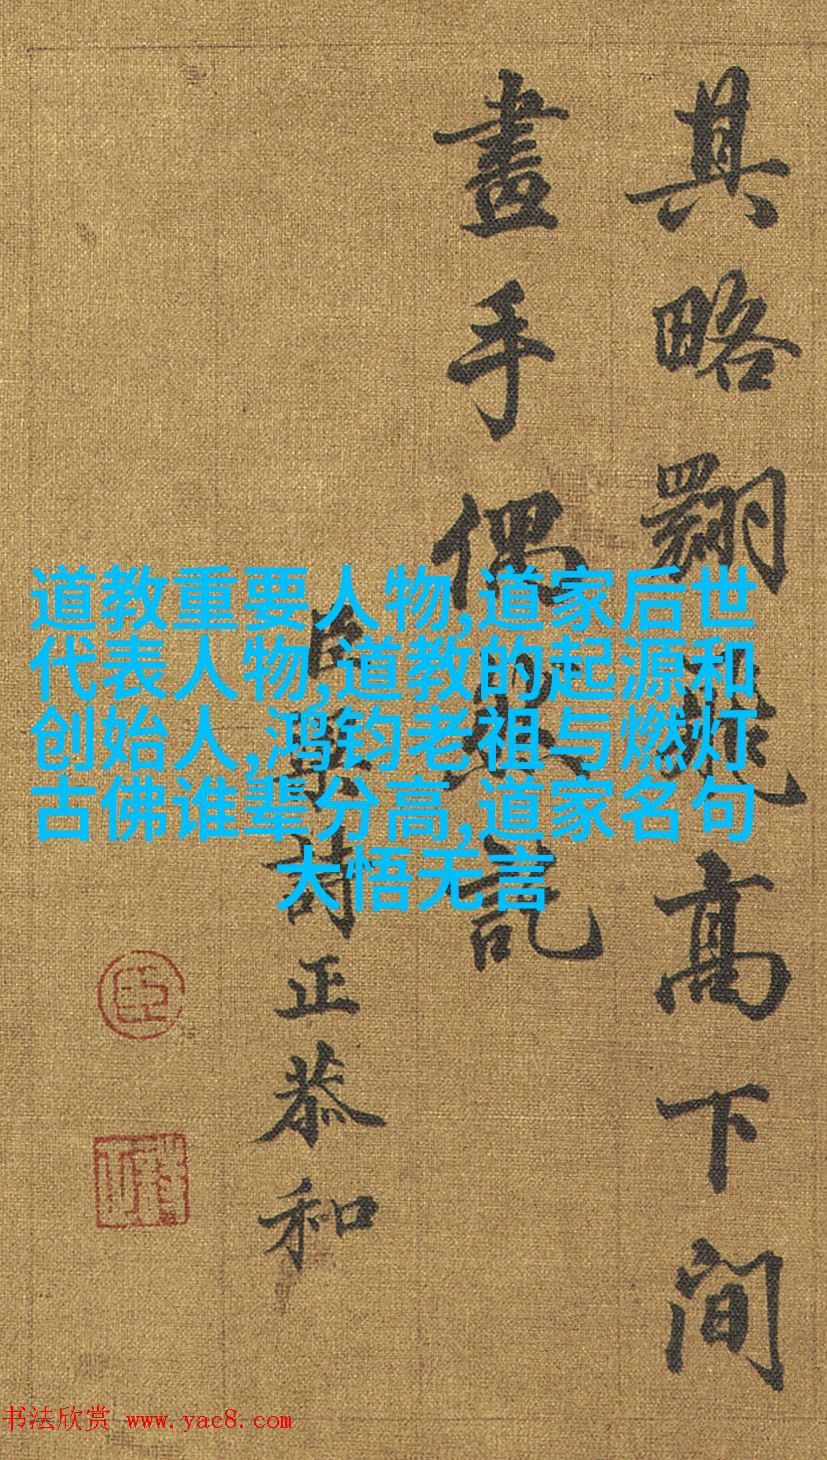 其略翾飛高下間
畫手偶然託
臣梁詩正恭和
臣
道教重要人物,道家后世
代表人物,道教的起源和
创始人,鸿钧老祖与燃灯
古佛谁辈分高,道家名句
大悟无言
书法欣赏 www.yac8.com